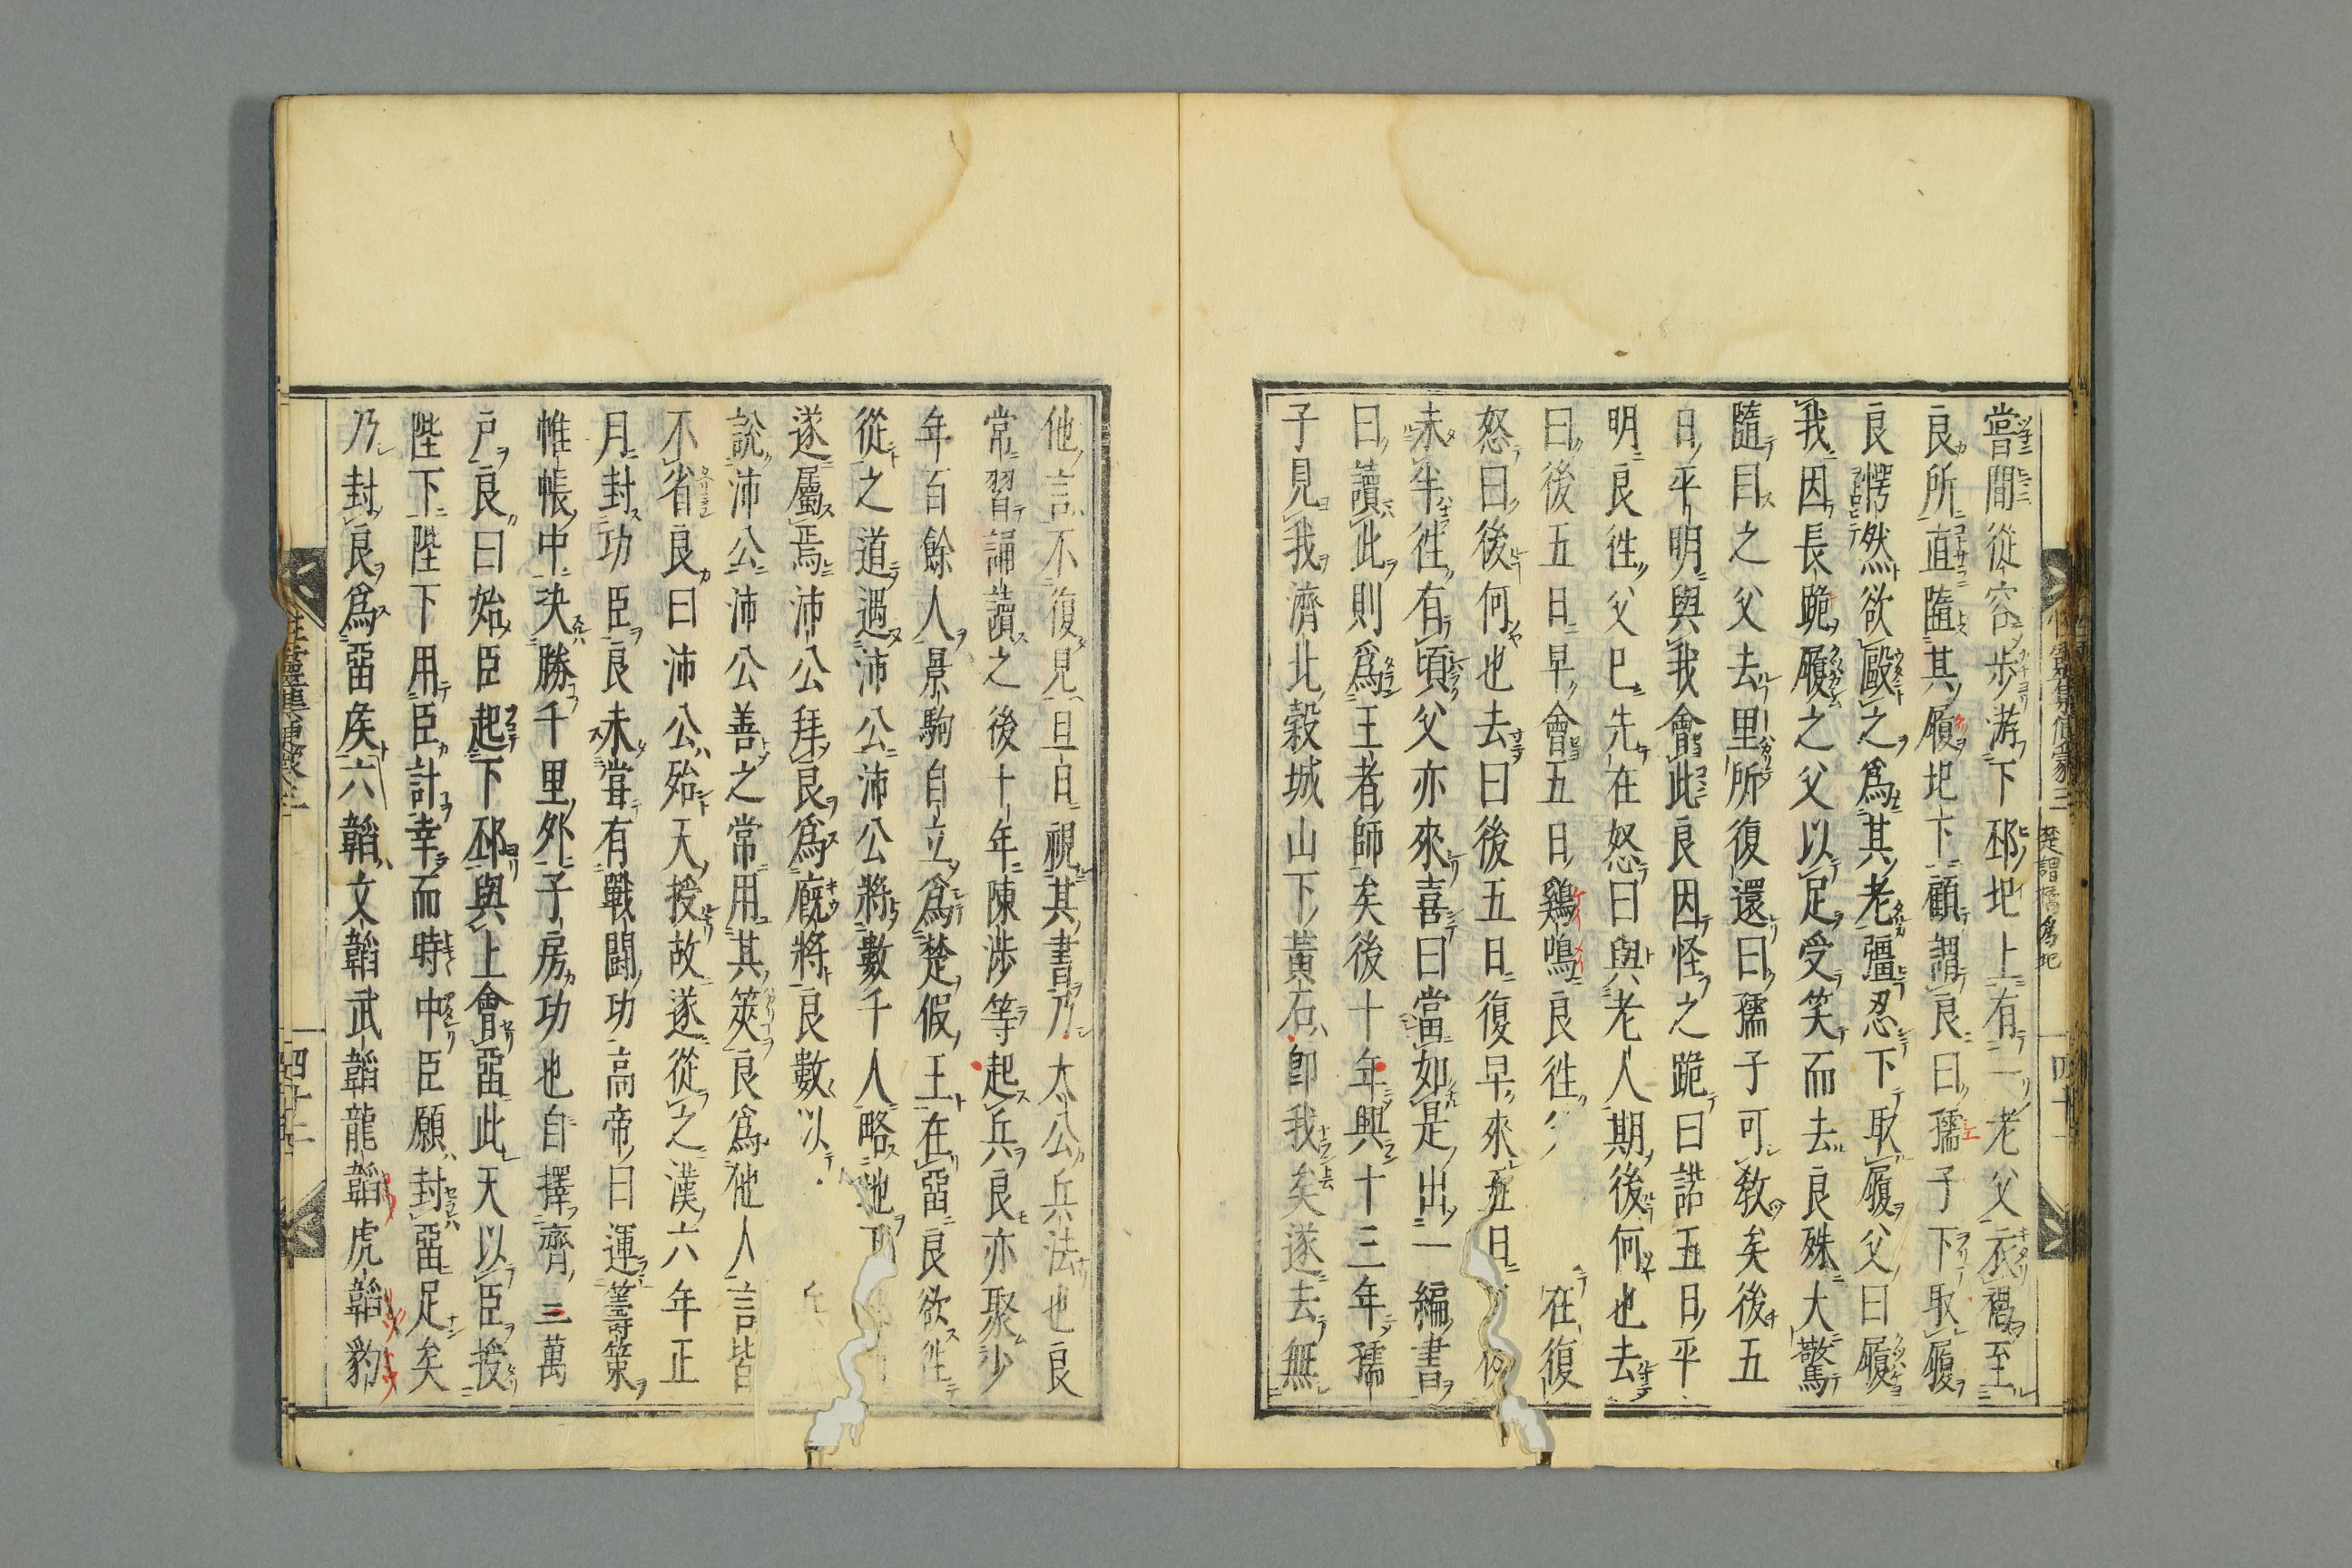 嘗閒從容步游下邳圯上有一老父衣褐至
良所直隨其履圯下顧謂良曰孺子下取履
良愕然欲毆之爲其老彊忍下取履父曰履
我因長跪履之父以足受笑而去良殊大驚
隨目之父去里所復還曰孺子可教矣後五
日平明與我會此良因怪之跪曰諾五日平
明良徃父已先在怒曰與老人期後何也去
曰後五日早會五日鷄鳴良徃 在復
怒曰後何也去曰後五日復早來五日
未半徃有頃父亦來喜曰當如是出一編書
曰讀此則爲王者師矣後十年興十三年孺
子見我濟北穀城山下黃石即我矣遂去無
楚謂橋爲圯
他言不復見旦日視其書乃太公兵法也良
常習誦讀之後十年陳渉等起兵良亦聚少
年百餘人景駒自立爲楚假王在畱良欲徃
從之道遇沛公沛公將數千人略地
遂屬焉沛公拜良爲廐將良數以
說沛公沛公善之常用其筴良爲他人言皆
不省良曰沛公殆天授故遂從之漢六年正
月封功臣良未甞有戰鬪功高帝曰運籌策
帷帳中决勝千里外子房功也自擇齊三萬
戸良曰始臣起下邳與上會畱此天以臣授
陛下陛下用臣計幸而時中臣願封畱足矣
乃封良爲畱矦六韜文韜武韜龍韜虎韜豹